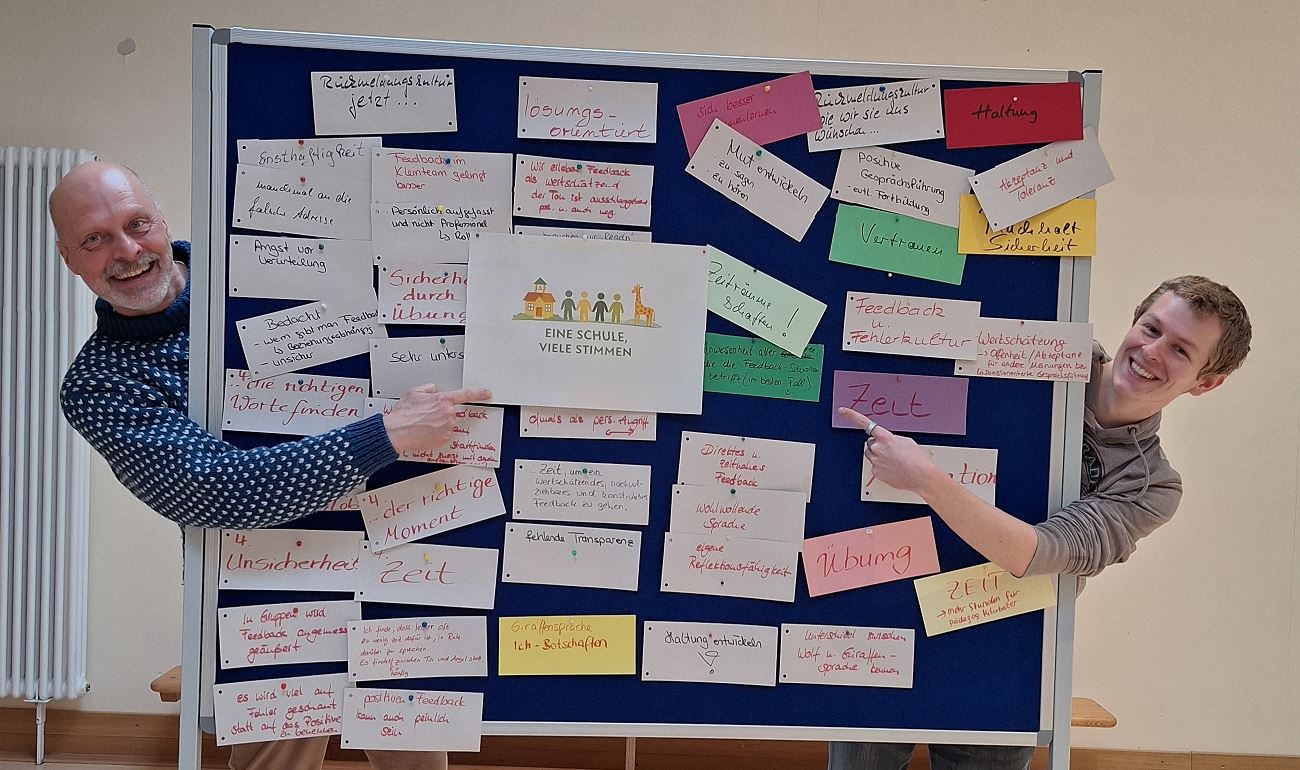 Rückmeldungskultur
jetzt ...
Ernsthaftigkeit
manchmal an die
falsche Adresse
Angst vor
Verurteilung
Bedacht
- wem gibt man Feedback
↳ Beziehungsabhängig
- unsicher
4.
.. die richtigen
Worte finden
Feedback im
Kleinteam gelingt
besser
Persönlich aufgefasst
und nicht Professionel
↳
Sicherhe
durch
Übung
sehr unters
4.
.. der richtige
Moment
4.
Unsicherheit
Zeit
In Gruppen wird
Feedback angemess
geäußert
Ich finde, dass leider oft
zu wenig Zeit dafür ist, in Ruhe
darüber zu sprechen.
Es findet zwischen Tür und Angel statt
häufig
es wird viel auf
Fehler geschaut
statt auf das Positive
zu benennen
positives Feedback
kann auch peinlich
sein
lösungs-
orientiert
Wir erleben Feedback
als wertschätzend
der Ton ist ausschlaggebend
pos. u. auch neg.
EINE SCHULE,
VIELE STIMMEN
oftmals als pers. Angriff
.. Zeit, um ein
wertschätzendes, nachvoll-
ziehbares und konstruktives
Feedback zu geben.
fehlende Transparenz
Giraffensprache
Ich-Botschaften
sich besser
kennenlernen
Mut entwickeln
- zu sagen
- zu hören
Rückmeldungskultur
wie wir sie uns
wünschen ...
Haltung
Positive
Gesprächsführung
- evtl. Fortbildung
Akzeptanz und
Toleranz
Vertrauen
Rückhalt
Sicherheit
Zeiträume
schaffen!
Anwesenheit aller
die die Feedback Situation
betrifft (im besten Fall)
Feedback
u.
Fehlerkultur
Wertschätzung
→ Offenheit/Akzeptanz
für andere Meinungen bzw.
lösungsorientierte Gesprächsführung
Zeit
Direktes u.
zeitnahes
Feedback
Wohlwollende
Sprache
eigene
Reflektionsfähigkeit
Übung
ZEIT
→ mehr Stunden für
pädagog. Mitarbeiter
Haltung entwickeln
!
Unterschied zwischen
Wolf u. Giraffen-
sprache kennen